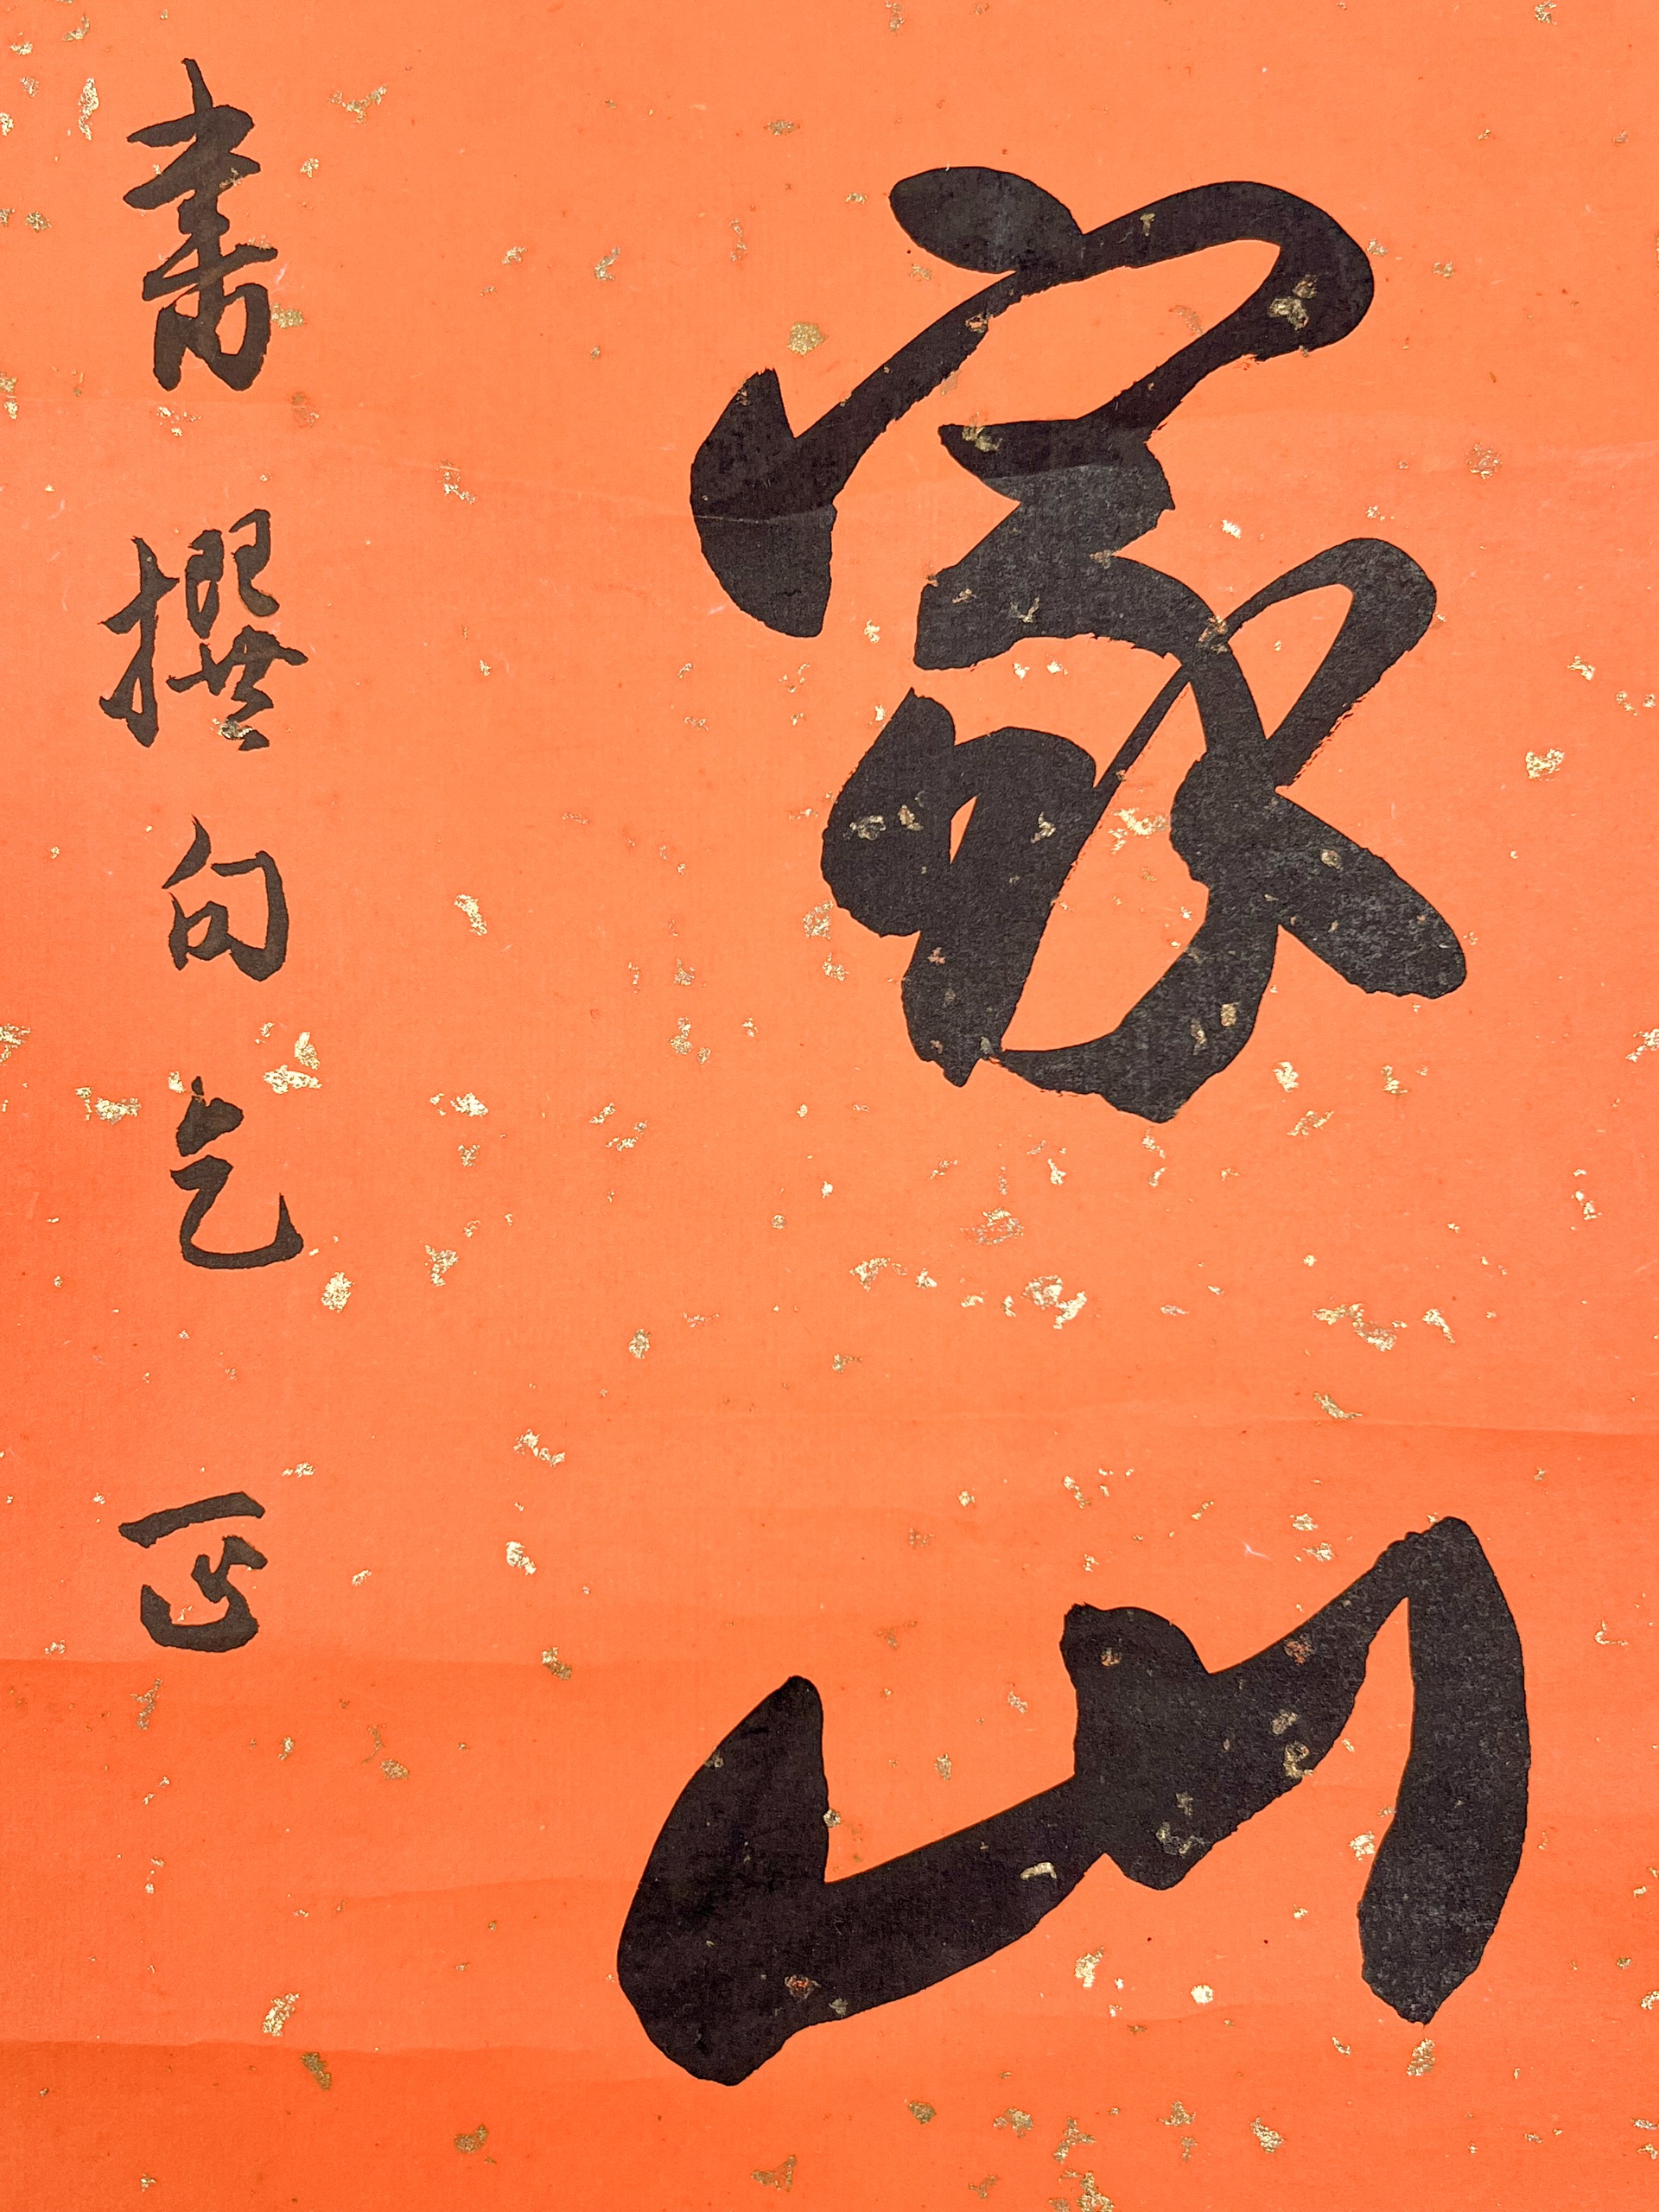 家山
肅撰句乞正